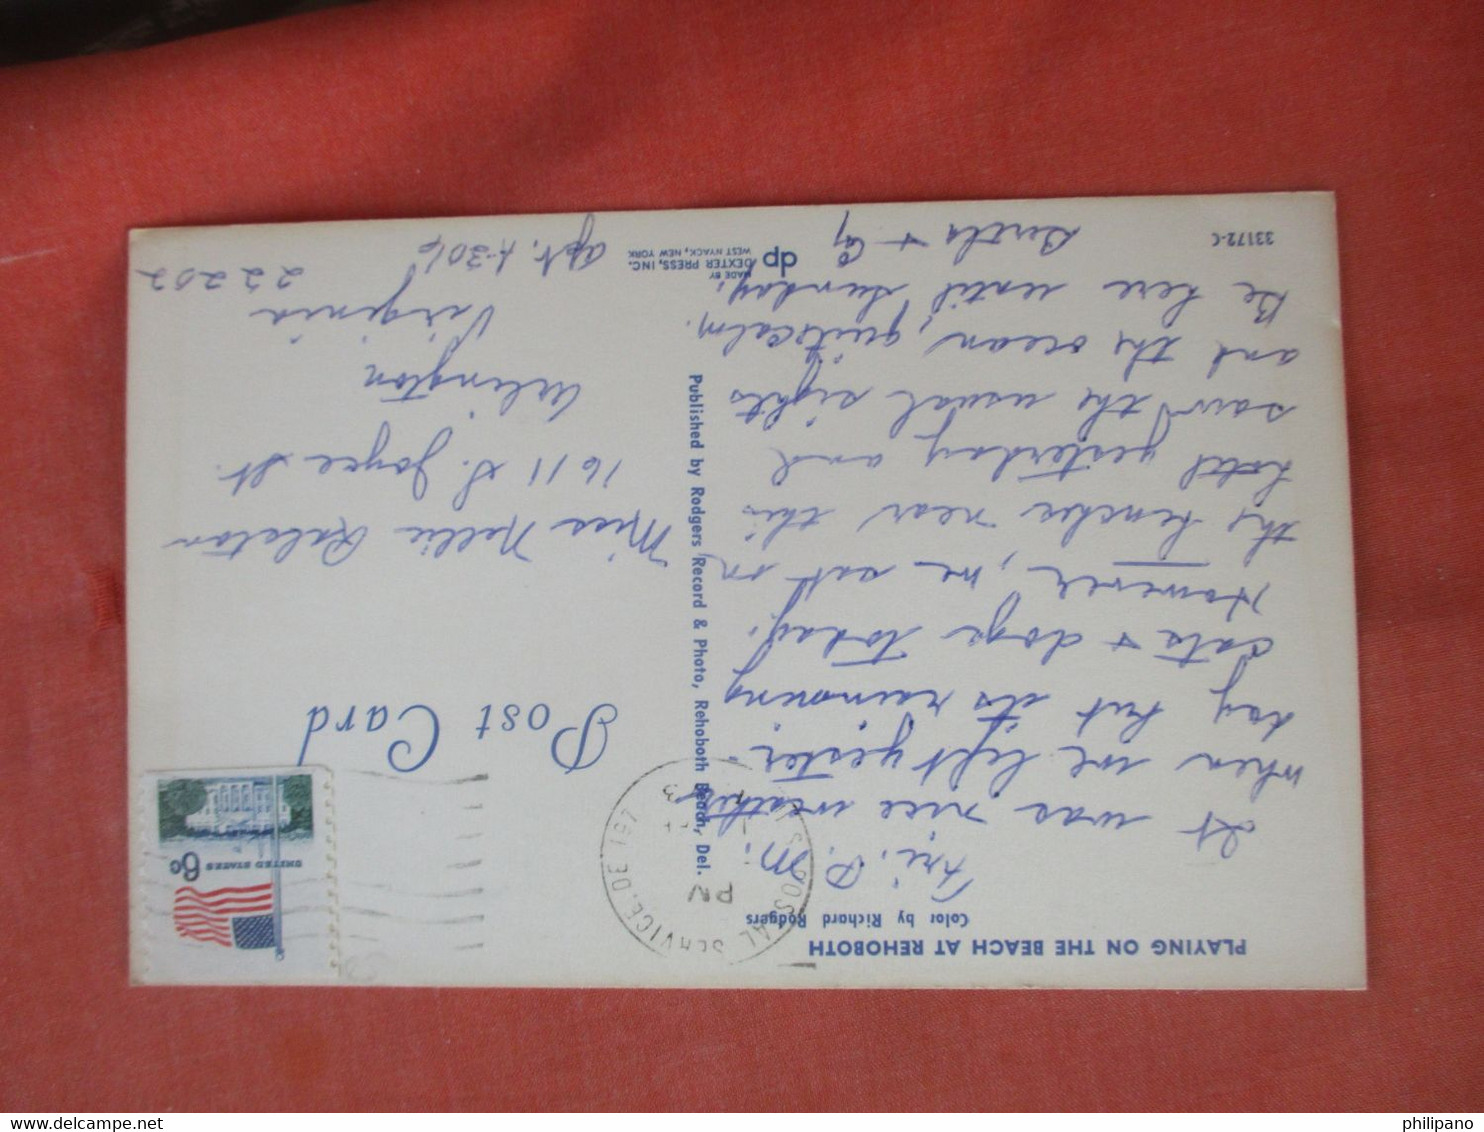 PLAYING ON THE BEACH AT REHOBOTH
Color by Richard Rodgers
Fri. P.M.
It was nice weather
when we left yester-
day but its rainning
cats + dogs today.
However, we sat on
the benches near this
hotel yesterday and
saw the usual sights
and the ocean, quite calm.
Be here until Sunday.
Bertha + Cy
33172-C
Published by Rodgers Record & Photo, Rehoboth Beach, Del.
dp
MADE BY
DEXTER PRESS, INC.
WEST NYACK, NEW YORK
U.S. POSTAL SERVICE. DE 197
PM
UNITED STATES 6c
Post Card
Miss Nellie Ralston
1611 S. Joyce St.
Arlington
Virginia
22202
Apt. A-306
philipano
delcampe.net